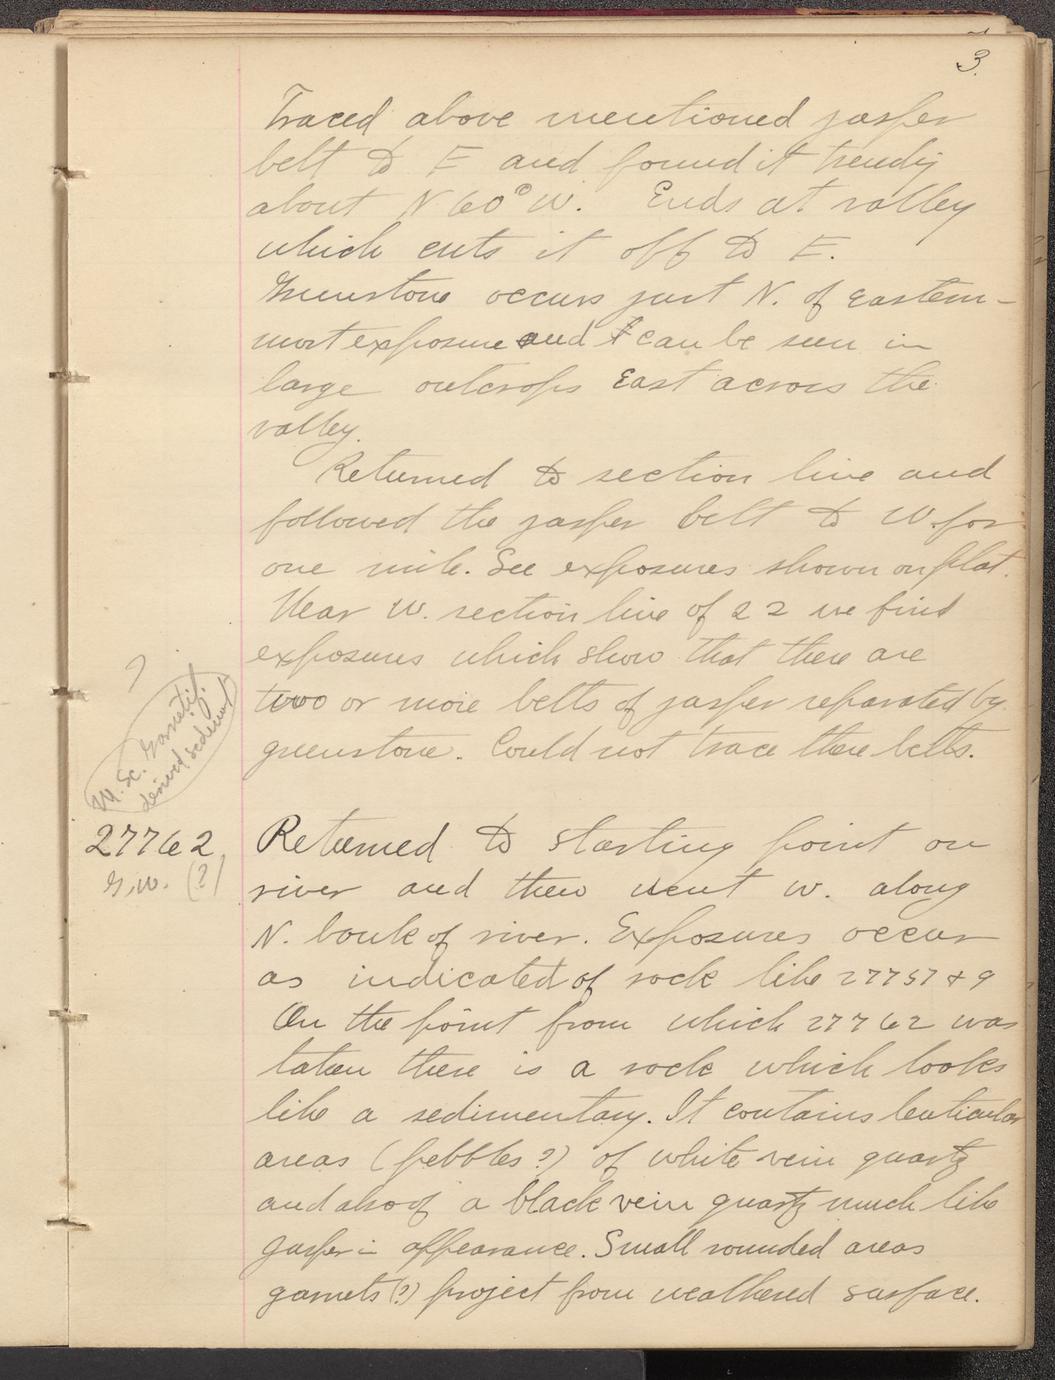 3.
Traced above mentioned jasper
belt to E and found it trendig
about N 60° W. Ends at valley
which cuts it off to E.
Greenstone occurs just N. of Eastern-
most exposure and can be seen in
large outcrops East across the
valley.
Returned to section line and
followed the jasper belt to W. for
one mile. See exposures shown on plat.
Near W. section line of 22 we find
exposures which show that there are
two or more belts of jasper separated by
greenstone. Could not trace these belts.
?
M. Sc. Garnetif.
derived sediment
27762
G.W. (?)
Returned to starting point on
river and then went W. along
N. bank of river. Exposures occur
as indicated of rock like 27757 & 9
On the point from which 27762 was
taken there is a rock which looks
like a sedimentary. It contains lenticular
areas (pebbles?) of white vein quartz
and also of a black vein quartz much like
jasper in appearance. Small rounded areas
garnets (?) project from weathered surface.